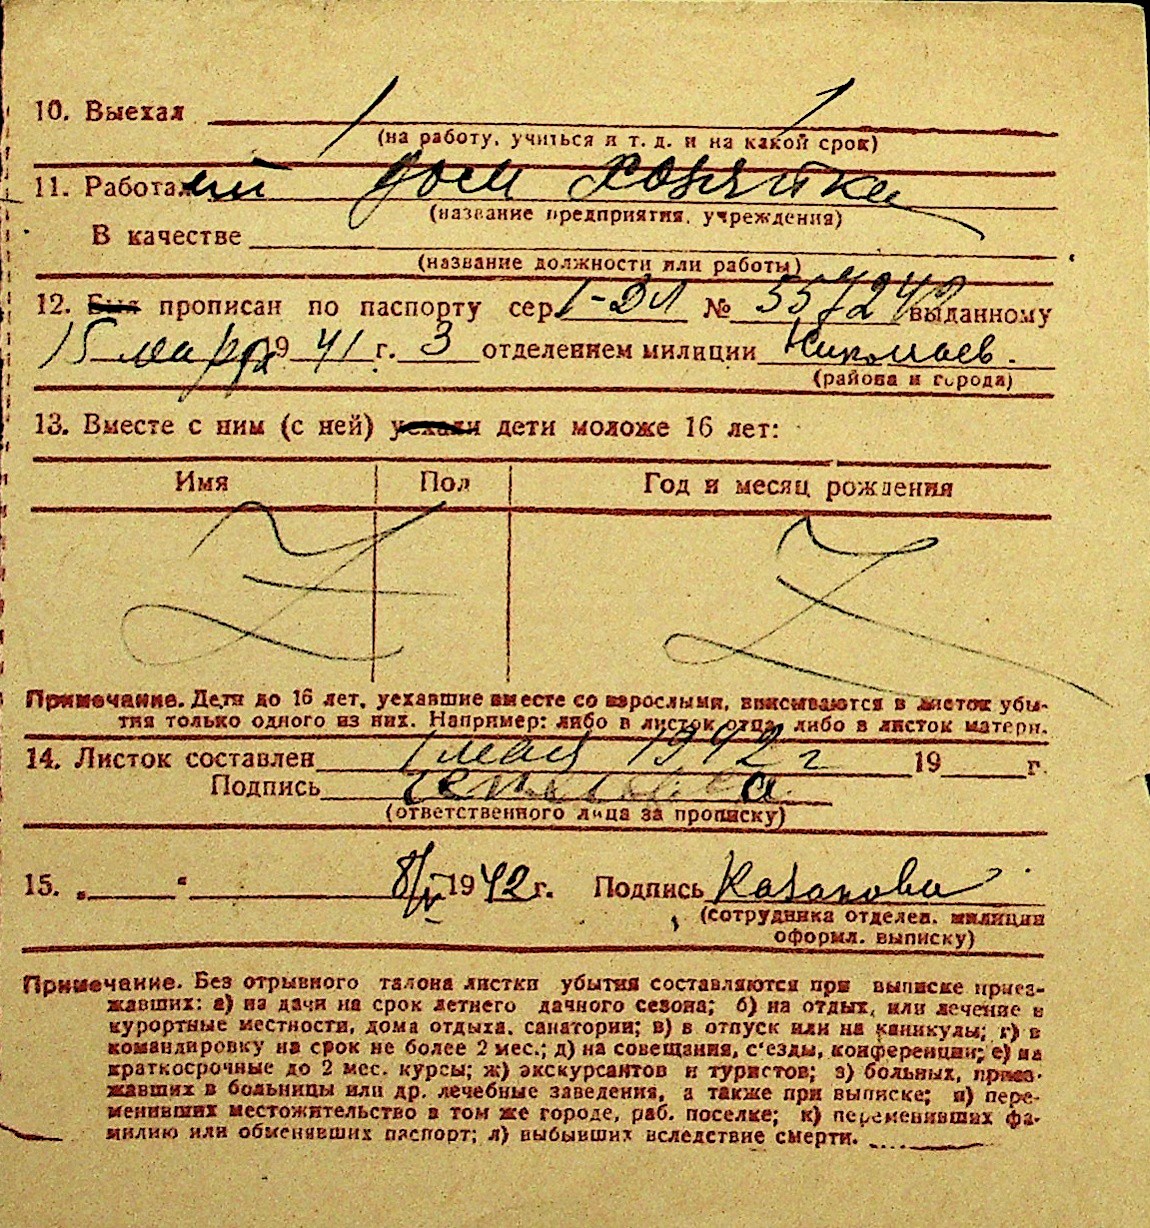 10. Выехал
(на работу, учиться и т. д. и на какой срок)
11. Работает дом хозяйка
(название предприятия, учреждения)
В качестве
(название должности или работы)
12. Был прописан по паспорту сер. 1-ЭЛ № 557242 выданному
15 марта 1941 г. 3 отделением милиции Николаев.
(района и города)
13. Вместе с ним (с ней) уехали дети моложе 16 лет:
Имя Пол Год и месяц рождения
Z Z
Примечание. Дети до 16 лет, уехавшие вместе со взрослыми, вписываются в листок убы-
тия только одного из них. Например: либо в листок отца, либо в листок матери.
14. Листок составлен 1 мая 1942 г 19 г.
Подпись
(ответственного лица за прописку)
15. „ “ 8/V 1942 г. Подпись Казакова
(сотрудника отделен. милиции
оформл. выписку)
Примечание. Без отрывного талона листки убытия составляются при выписке приез-
жавших: а) на дачи на срок летнего дачного сезона; б) на отдых, или лечение в
курортные местности, дома отдыха, санатории; в) в отпуск или на каникулы; г) в
командировку на срок не более 2 мес.; д) на совещания, с'езды, конференции; е) на
краткосрочные до 2 мес. курсы; ж) экскурсантов и туристов; з) больных, приез-
жавших в больницы или др. лечебные заведения, а также при выписке; и) пере-
менивших местожительство в том же городе, раб. поселке; к) переменивших фа-
милию или обменявших паспорт; л) выбывших вследствие смерти.